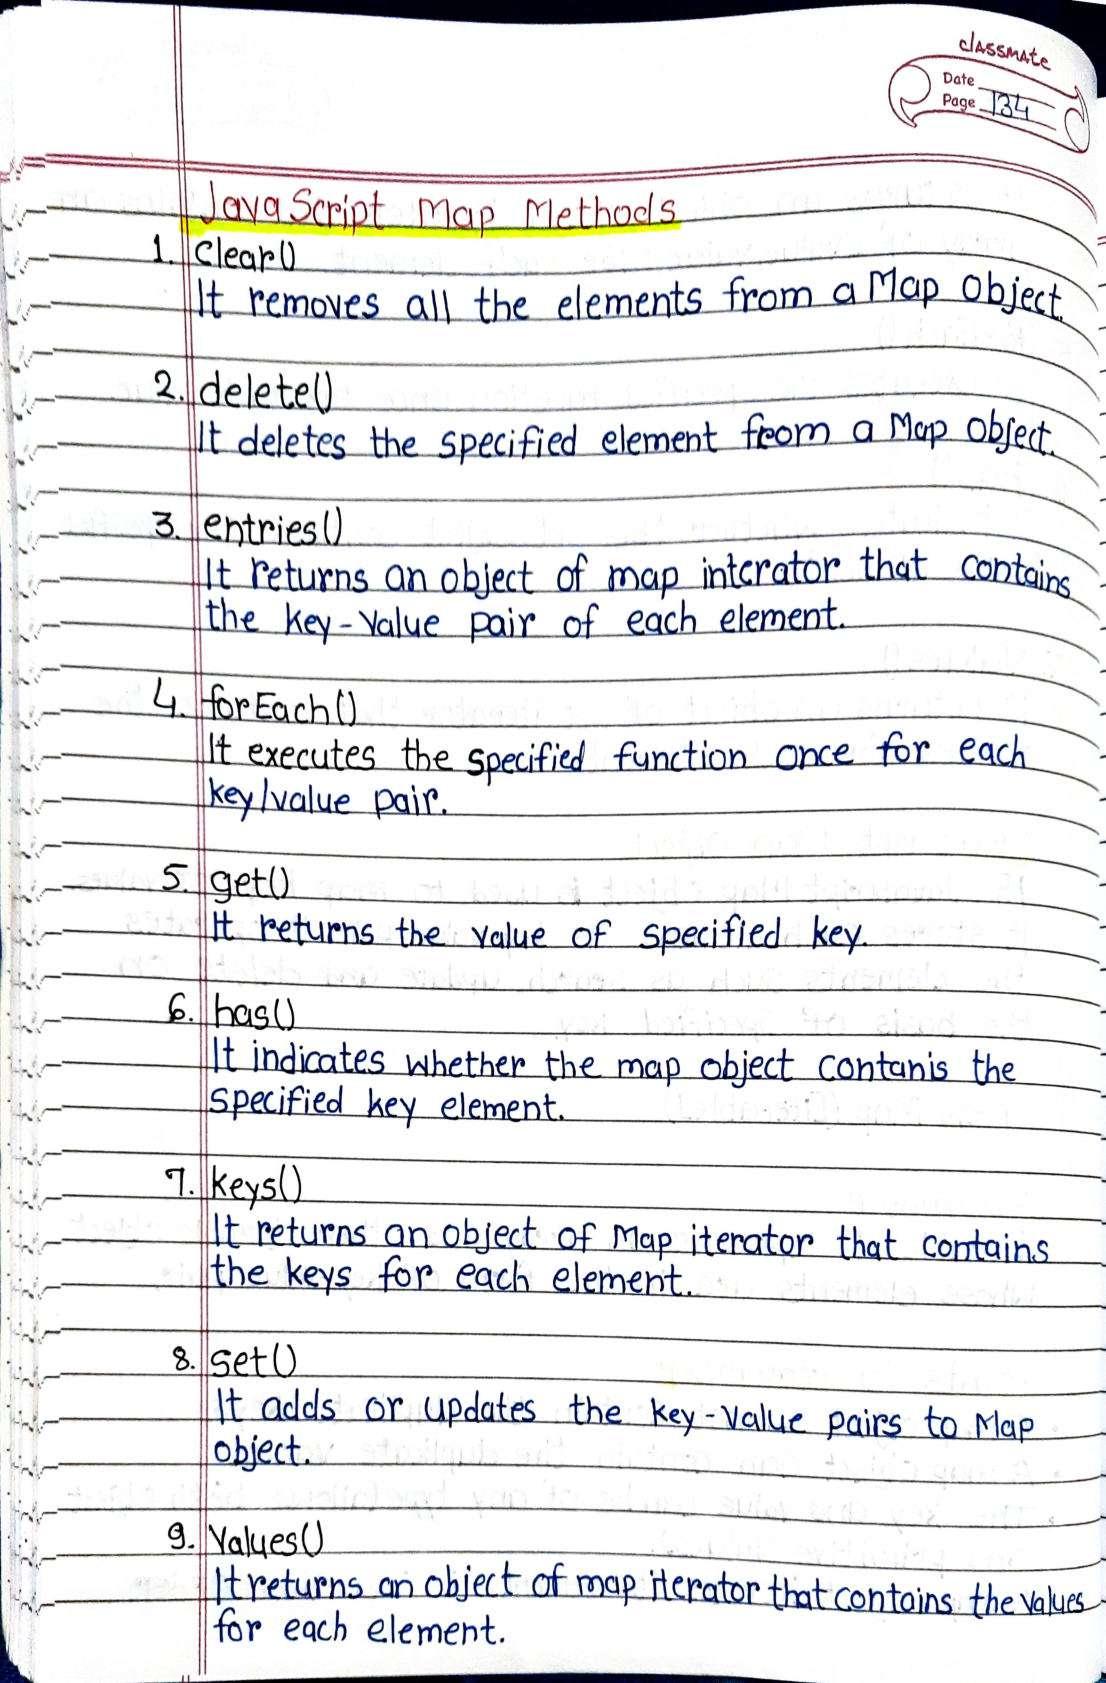 classmate
Date
Page 134
JavaScript Map Methods
1. Clear()
It removes all the elements from a Map Object.
2. delete()
It deletes the specified element from a Map object.
3. entries()
It returns an object of map intcrator that contains
the key-value pair of each element.
4. forEach()
It executes the specified function once for each
key/value pair.
5. get()
It returns the value of specified key.
6. has()
It indicates whether the map object contanis the
specified key element.
7. keys()
It returns an object of Map iterator that contains
the keys for each element.
8. set()
It adds or updates the key-value pairs to Map
object.
9. Values()
It returns an object of map iterator that contains the values
for each element.